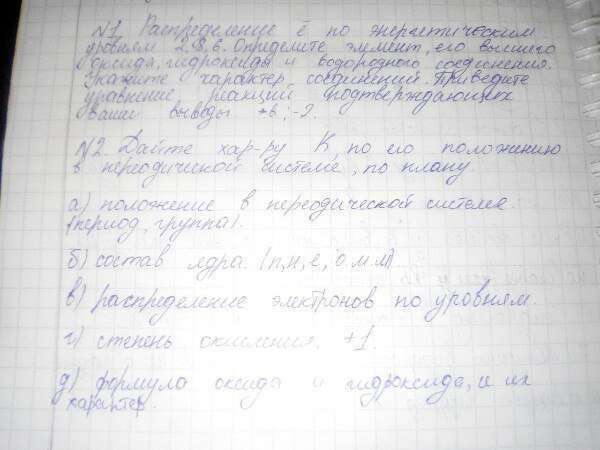 N1. Распределение ē по энергетическим
уровням 2.8.6. Определите элемент, его высшего
оксида, гидроксида и водородного соединения.
Укажите характер соединений. Приведите
уравнение реакций подтверждающих
ваши выводы. +6; -2.
N2. Дайте хар-ру К, по его положению
в переодической системе, по плану
а) положение в переодической системе.
(период, группа).
б) состав ядра. (п, н, е, о.м.м)
в) распределение электронов по уровням.
г) степень окисления. +1.
д) формула оксида и гидроксида, и их
характер.